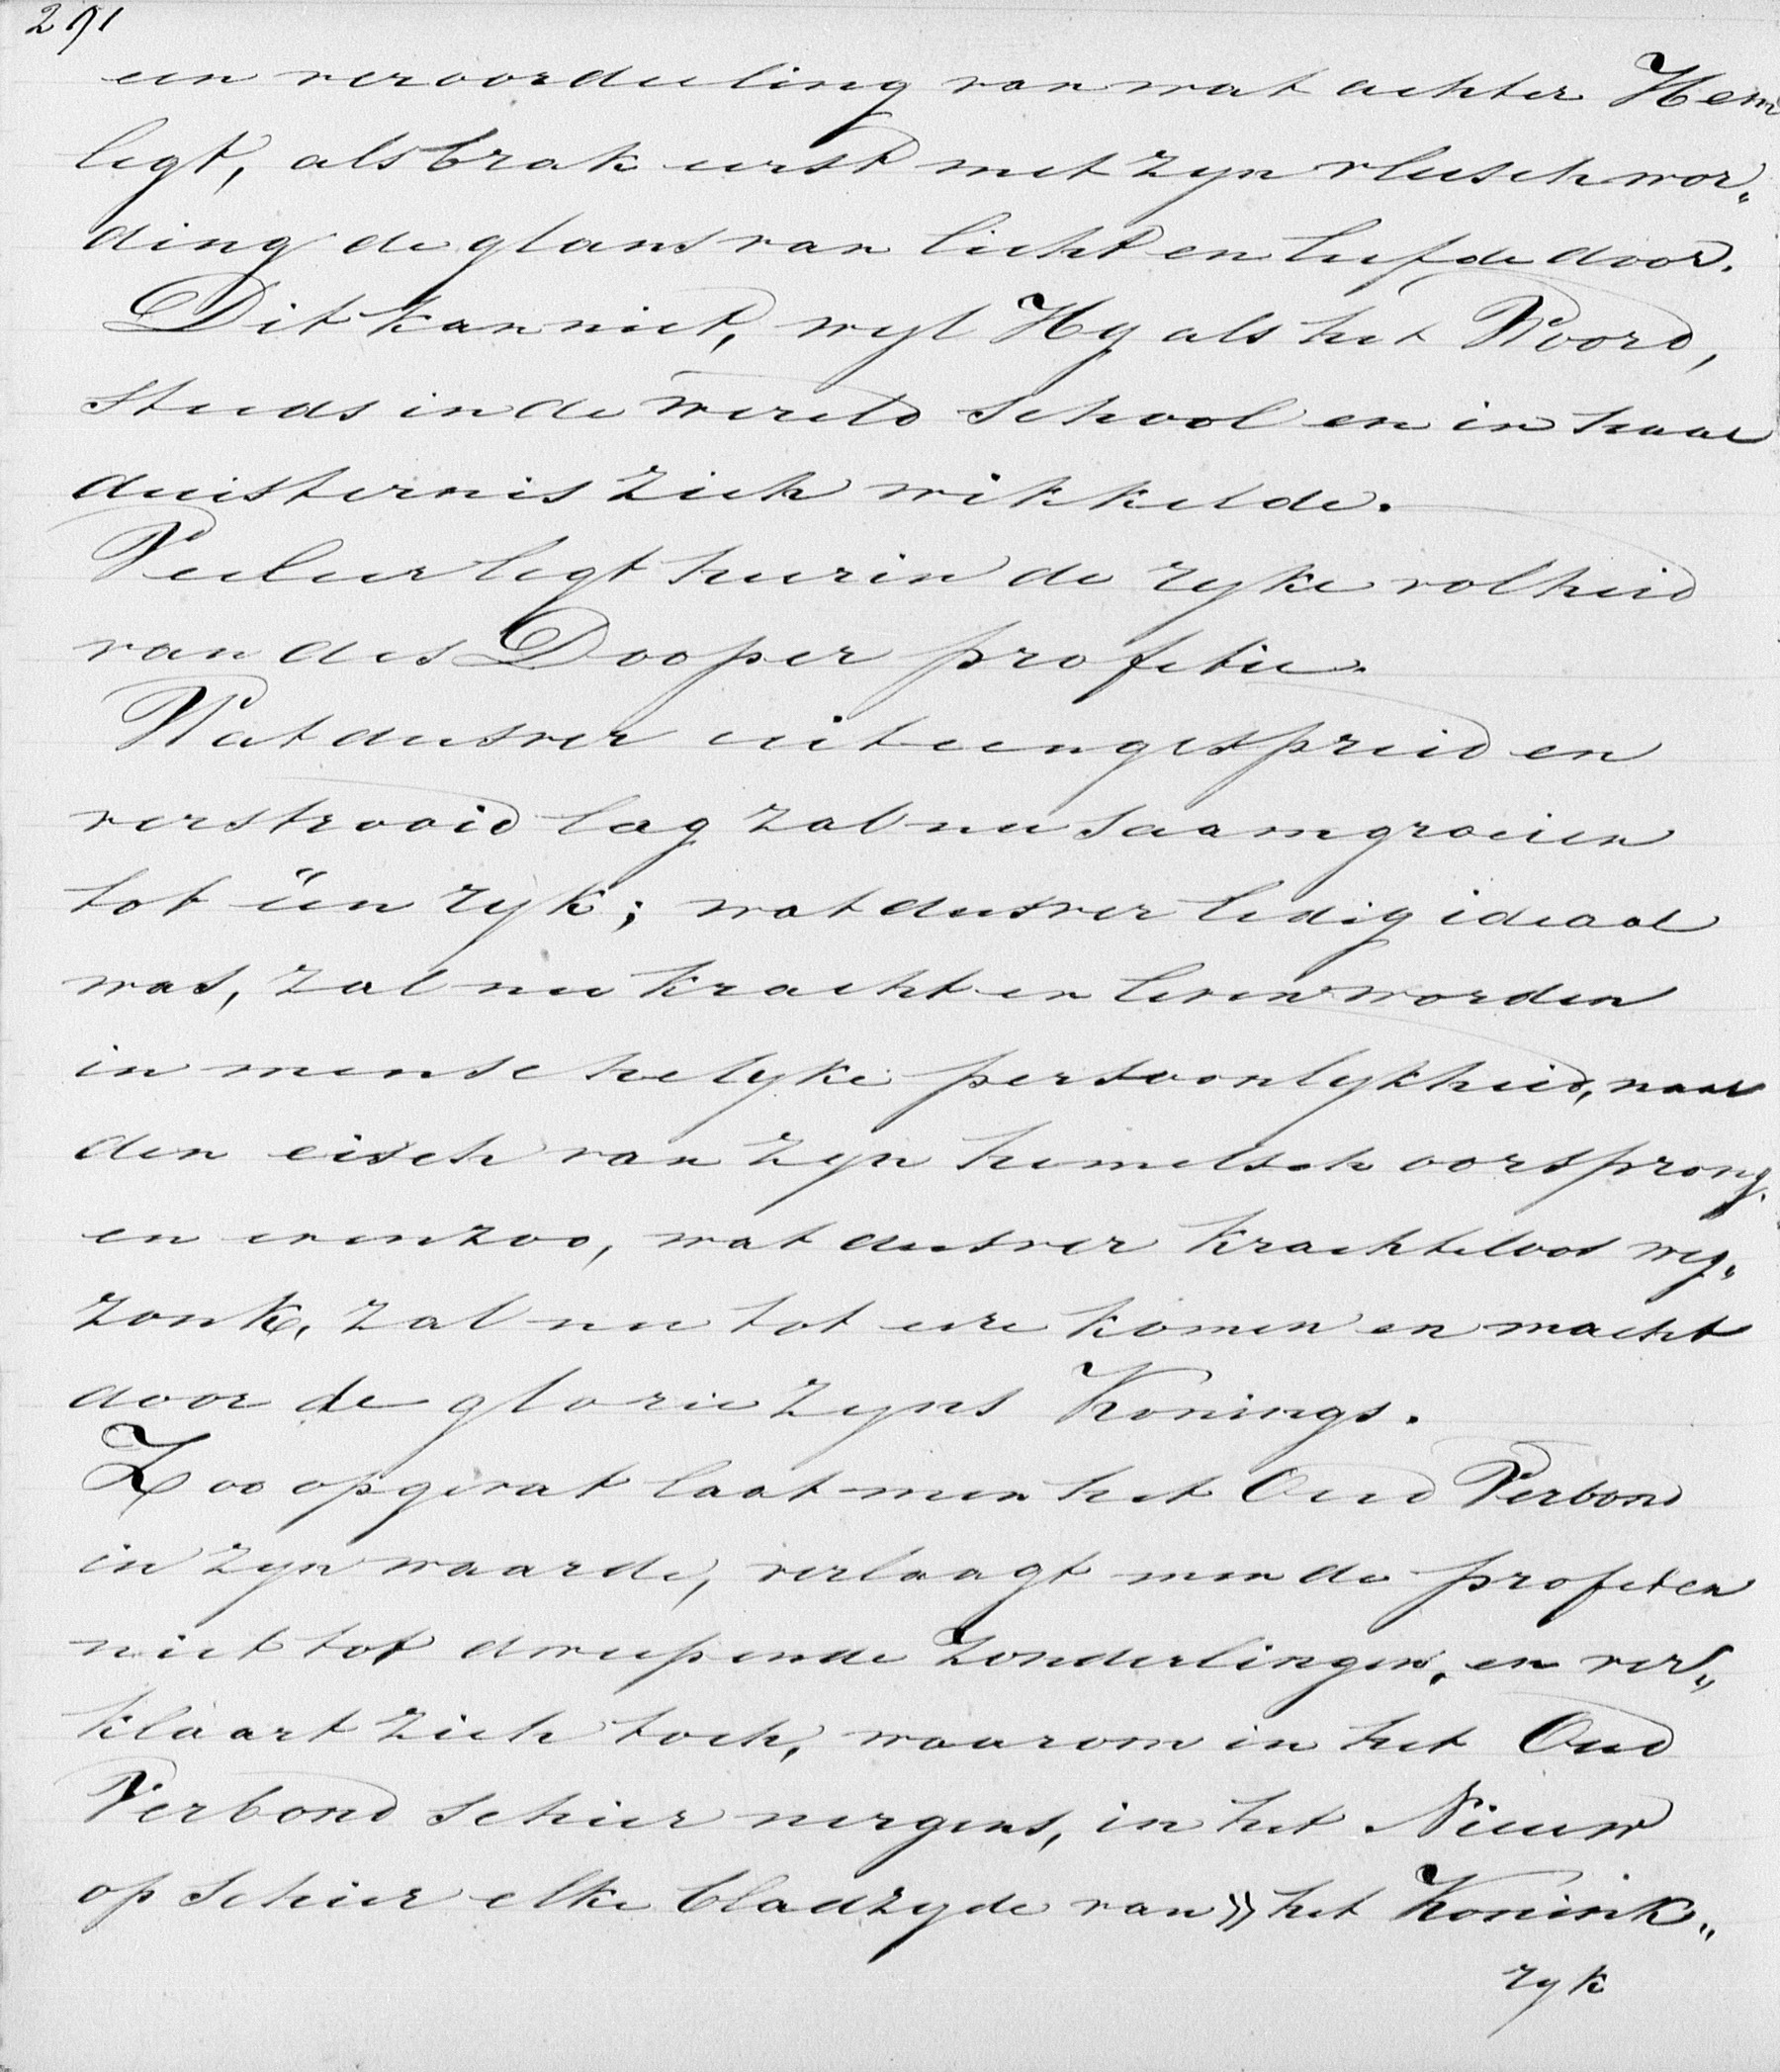 291
een veroordeeling van wat achter Hem
legt, als brak eerst met zyn vleeschwor„
ding de glans van licht en liefde door.
Dit kan niet, wyl Hy als het Woord,
steeds in de wereld school en in haar
duisternis zich wikkelde.
Veeleer legt hierin de ryke volheid
van des Dooper profetie.
Wat dusver uiteengespreid en
verstrooid lag zal nu saamgroeien
tot één ryk; wat dusver ledig ideaal
was, zal nu kracht en leven worden
in menschelyke persoonlykheid, naar
den eisch van zyn hemelsch oorsprong.
en evenzoo, wat dusver krachteloos weg„
zonk, zal nu tot eere komen en macht
door de glorie zyns Konings.
Zoo opgevat laat men het Oud Verbond
in zyn waarde, verlaagt men de profeten
niet tot dweepende zonderlingen, en ver„
klaart zich toch, waarom in het Oud
Verbond schier nergens, in het Nieuw
op schier elke bladzyde van » het Konink„
ryk